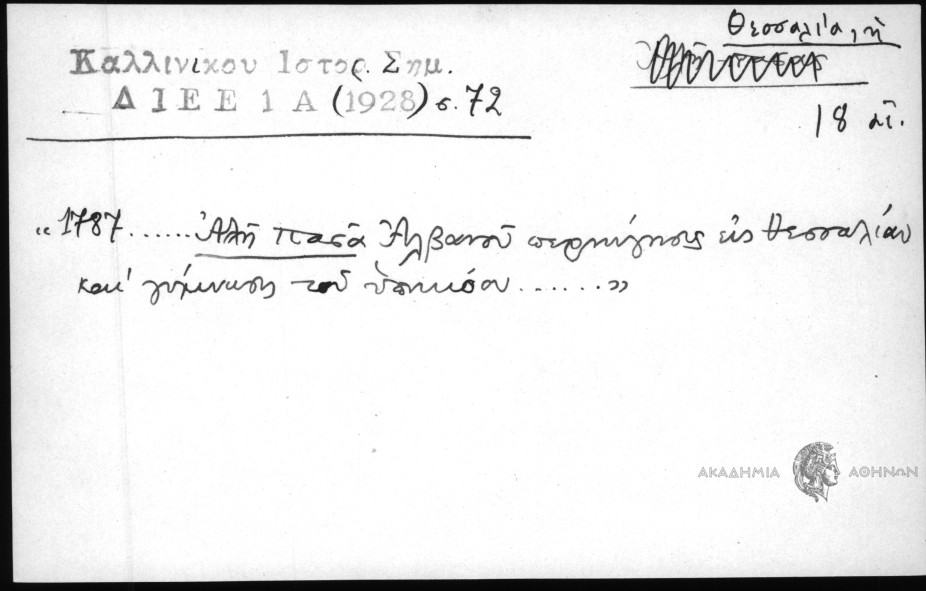 Θεσσαλία, ἡ
Καλλινίκου Ιστορ. Σημ.
ΔΙΕΕ 1 Α (1928) σ. 72
18 αἰ.
« 1787 ...... Ἀλῆ πασᾶ Ἀλβανοῦ περιήγησις εἰς Θεσσαλίαν
καὶ γύμνωσις τοῦ ὑπηκόου ...... »
ΑΚΑΔΗΜΙΑ ΑΘΗΝΩΝ